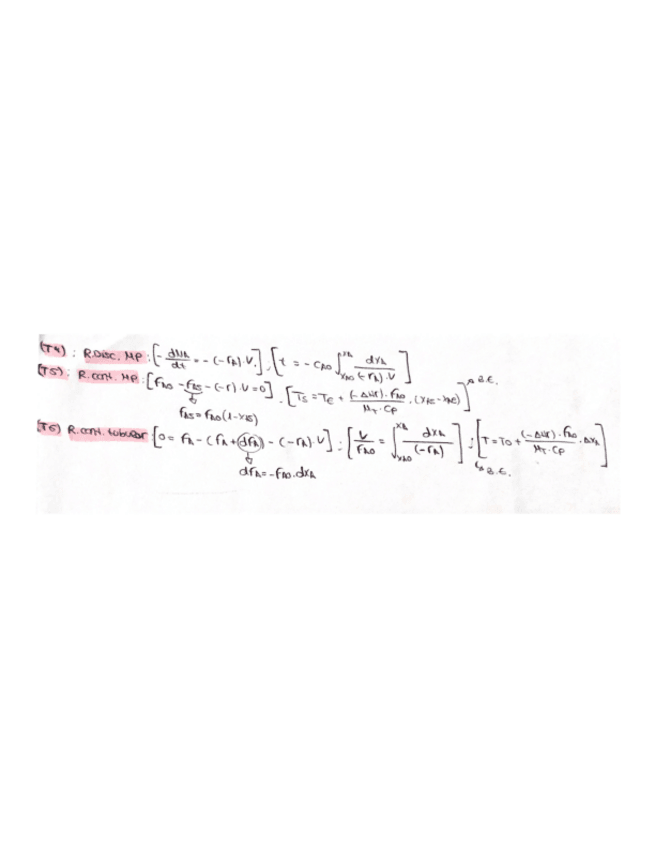 (T4) : R.Disc. MP : [- dNA/dt = - (-rA).V.] , [t = - CAO ∫XAO^XA dXA/(-rA).V]
(T5) : R.cont. MP : [FAO - FAS - (-r).V=0] . [TS = TE + (-ΔHr).FAO/MT.CP . (XAS - XAE)] → B.E.
FAS = FAO(1-XAS)
(T6) R.cont. tubular [0 = FA - (FA + dFA) - (-rA).V] : [V/FAO = ∫XAO^XA dXA/(-rA)] ; [T = TO + (-ΔHr).FAO/MT.CP . ΔXA]
dFA = -FAO.dXA
↳ B.E.